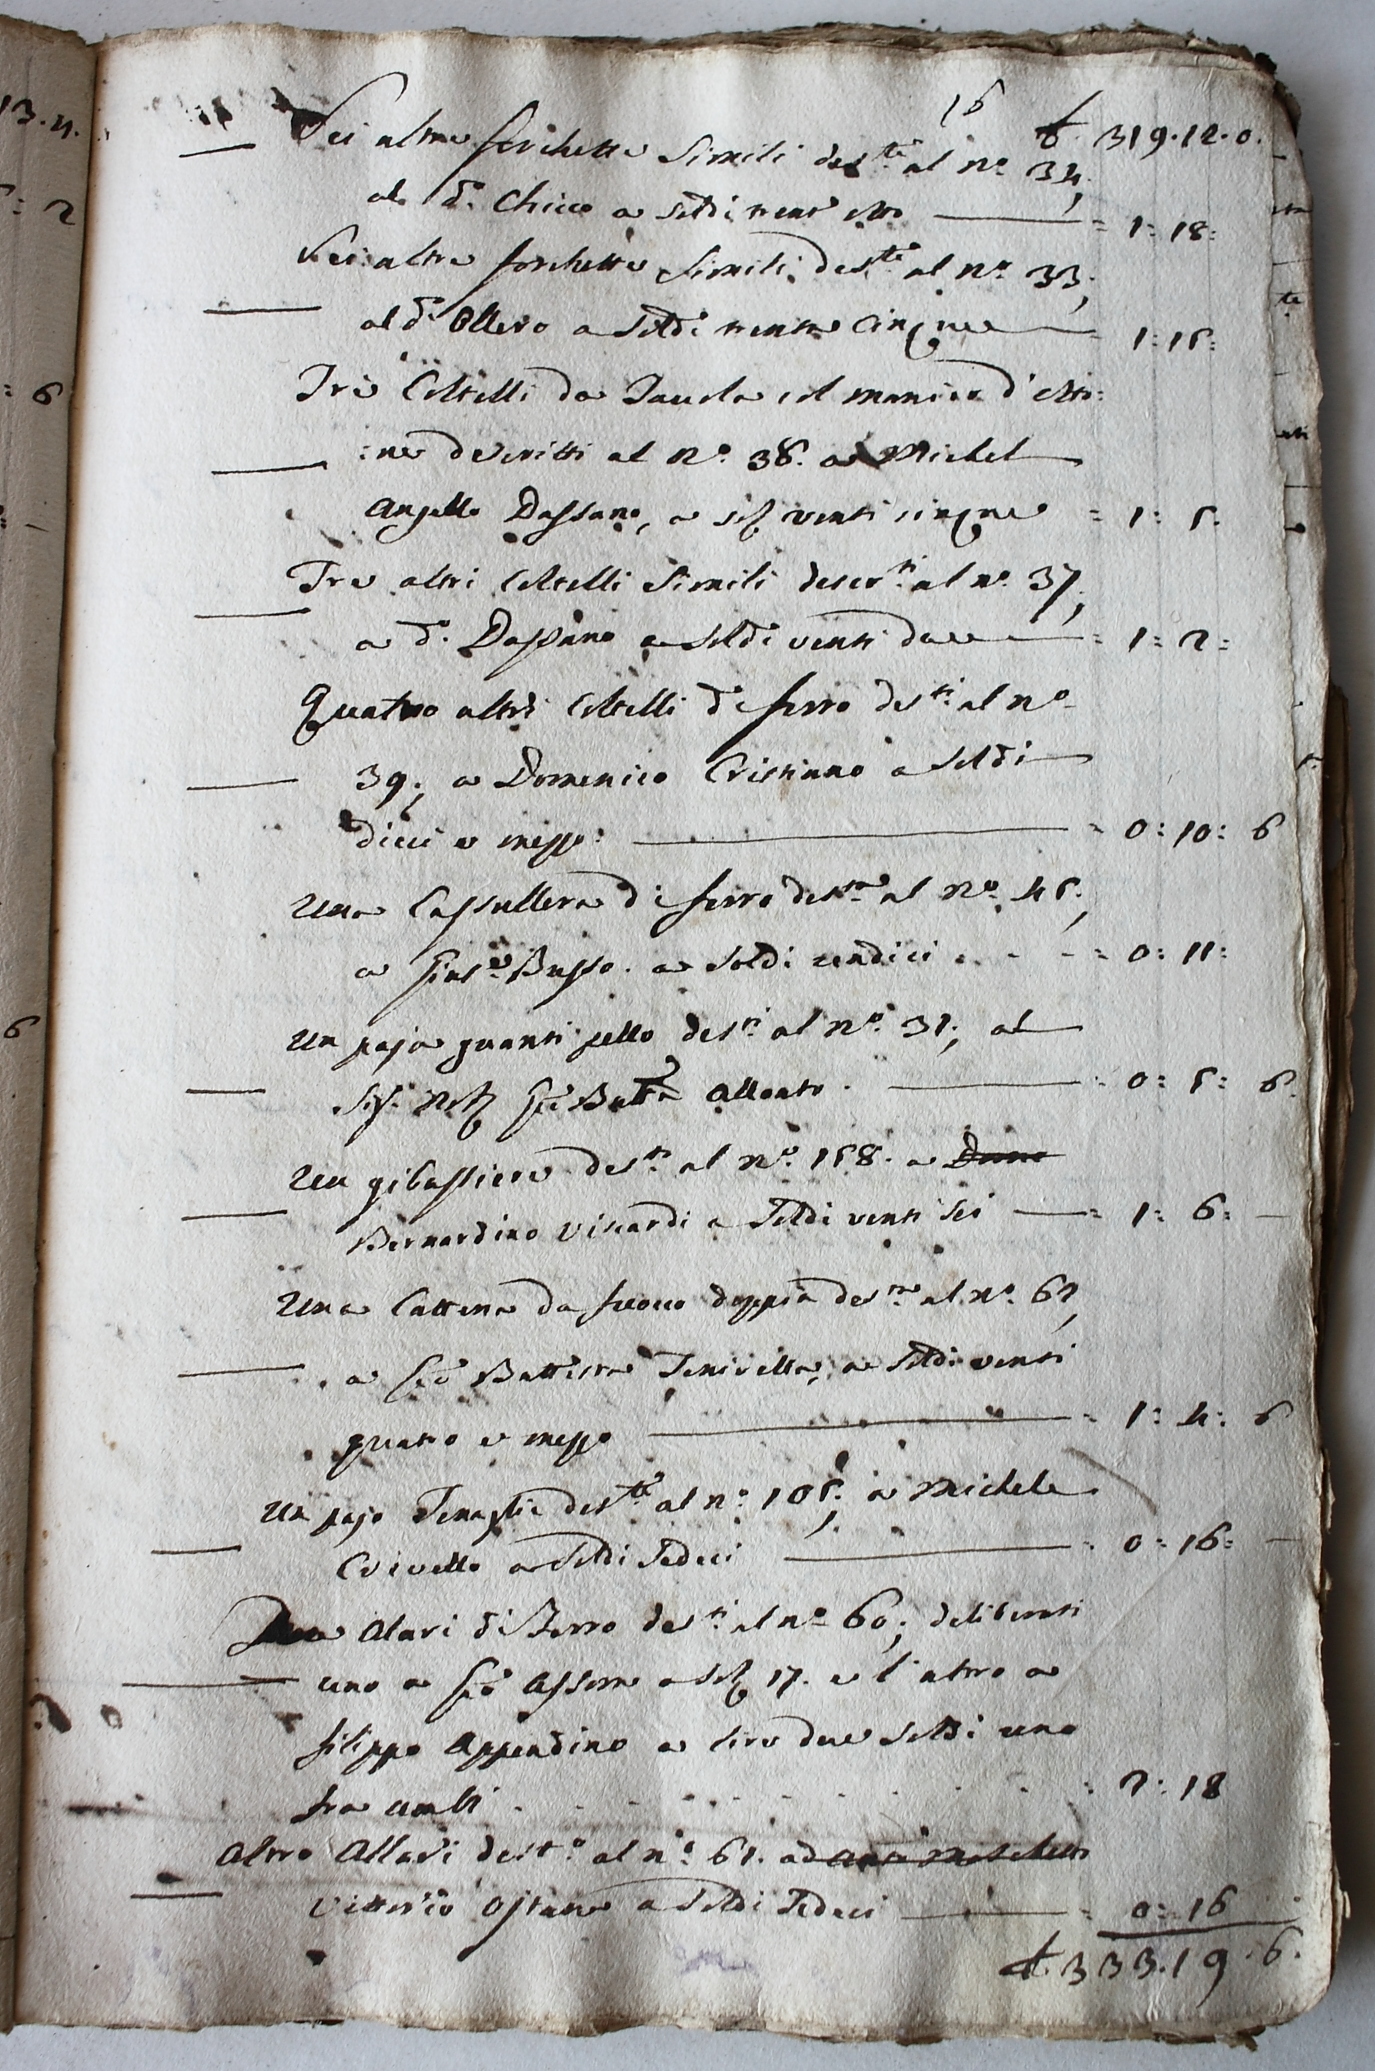 16
£ 319. 12. 0.
Sei altre forchette simili des.te al n.o 34;
al d.o Chicco a soldi trent'otto = 1: 18:
Sei altre forchette simili des.te al n.o 33;
al d.o Ollero a soldi trenta cinque 1: 15:
Tre Coltelli da Tavola col manico d'otto:
:ne descritti al n.o 38. a Michel
Angello Dassano, a sol. venti cinque = 1: 5.
Tre altri Coltelli simili descr.ti al n.o 37,
a d.o Dassano a soldi venti due = 1: 2:
Quatro altri Coltelli di ferro des.ti al n.o
39; a Domenico Cristiano a soldi
dieci e mezzo: = 0: 10: 6
Una Cassullera di ferro des.ta al n.o 45;
a Busso. a soldi undici = 0: 11:
Un pajo guanti pelle des.ti al n.o 31; al
Sig. Not. Gio Batta Allonto. = 0: 5: 6.
Un gibassiere des.to al n.o 158. a
Bernardino Viscardi a soldi venti sei = 1: 6:
Una Cattena da fuoco doppia des.ta al n.o 67,
a Gio Battista Tenivella, a soldi venti
quatro e mezzo = 1: 4: 6
Un pajo Tenaglie des.te al n.o 105; a Michele
Crivello a soldi sedeci = 0: 16:
Due Alari di Ferro des.ti al n.o 60; deliberati
uno a Gio a sol. 17. e l'altro a
filippo Appendino a lire due soldi uno
fra ambi = 2: 18
Altro Allari dest.o al n.o 61. ad
Vittorio a soldi sedeci = 0: 16
£ 333. 19. 6.
13. 4.
: 2
: 6
6